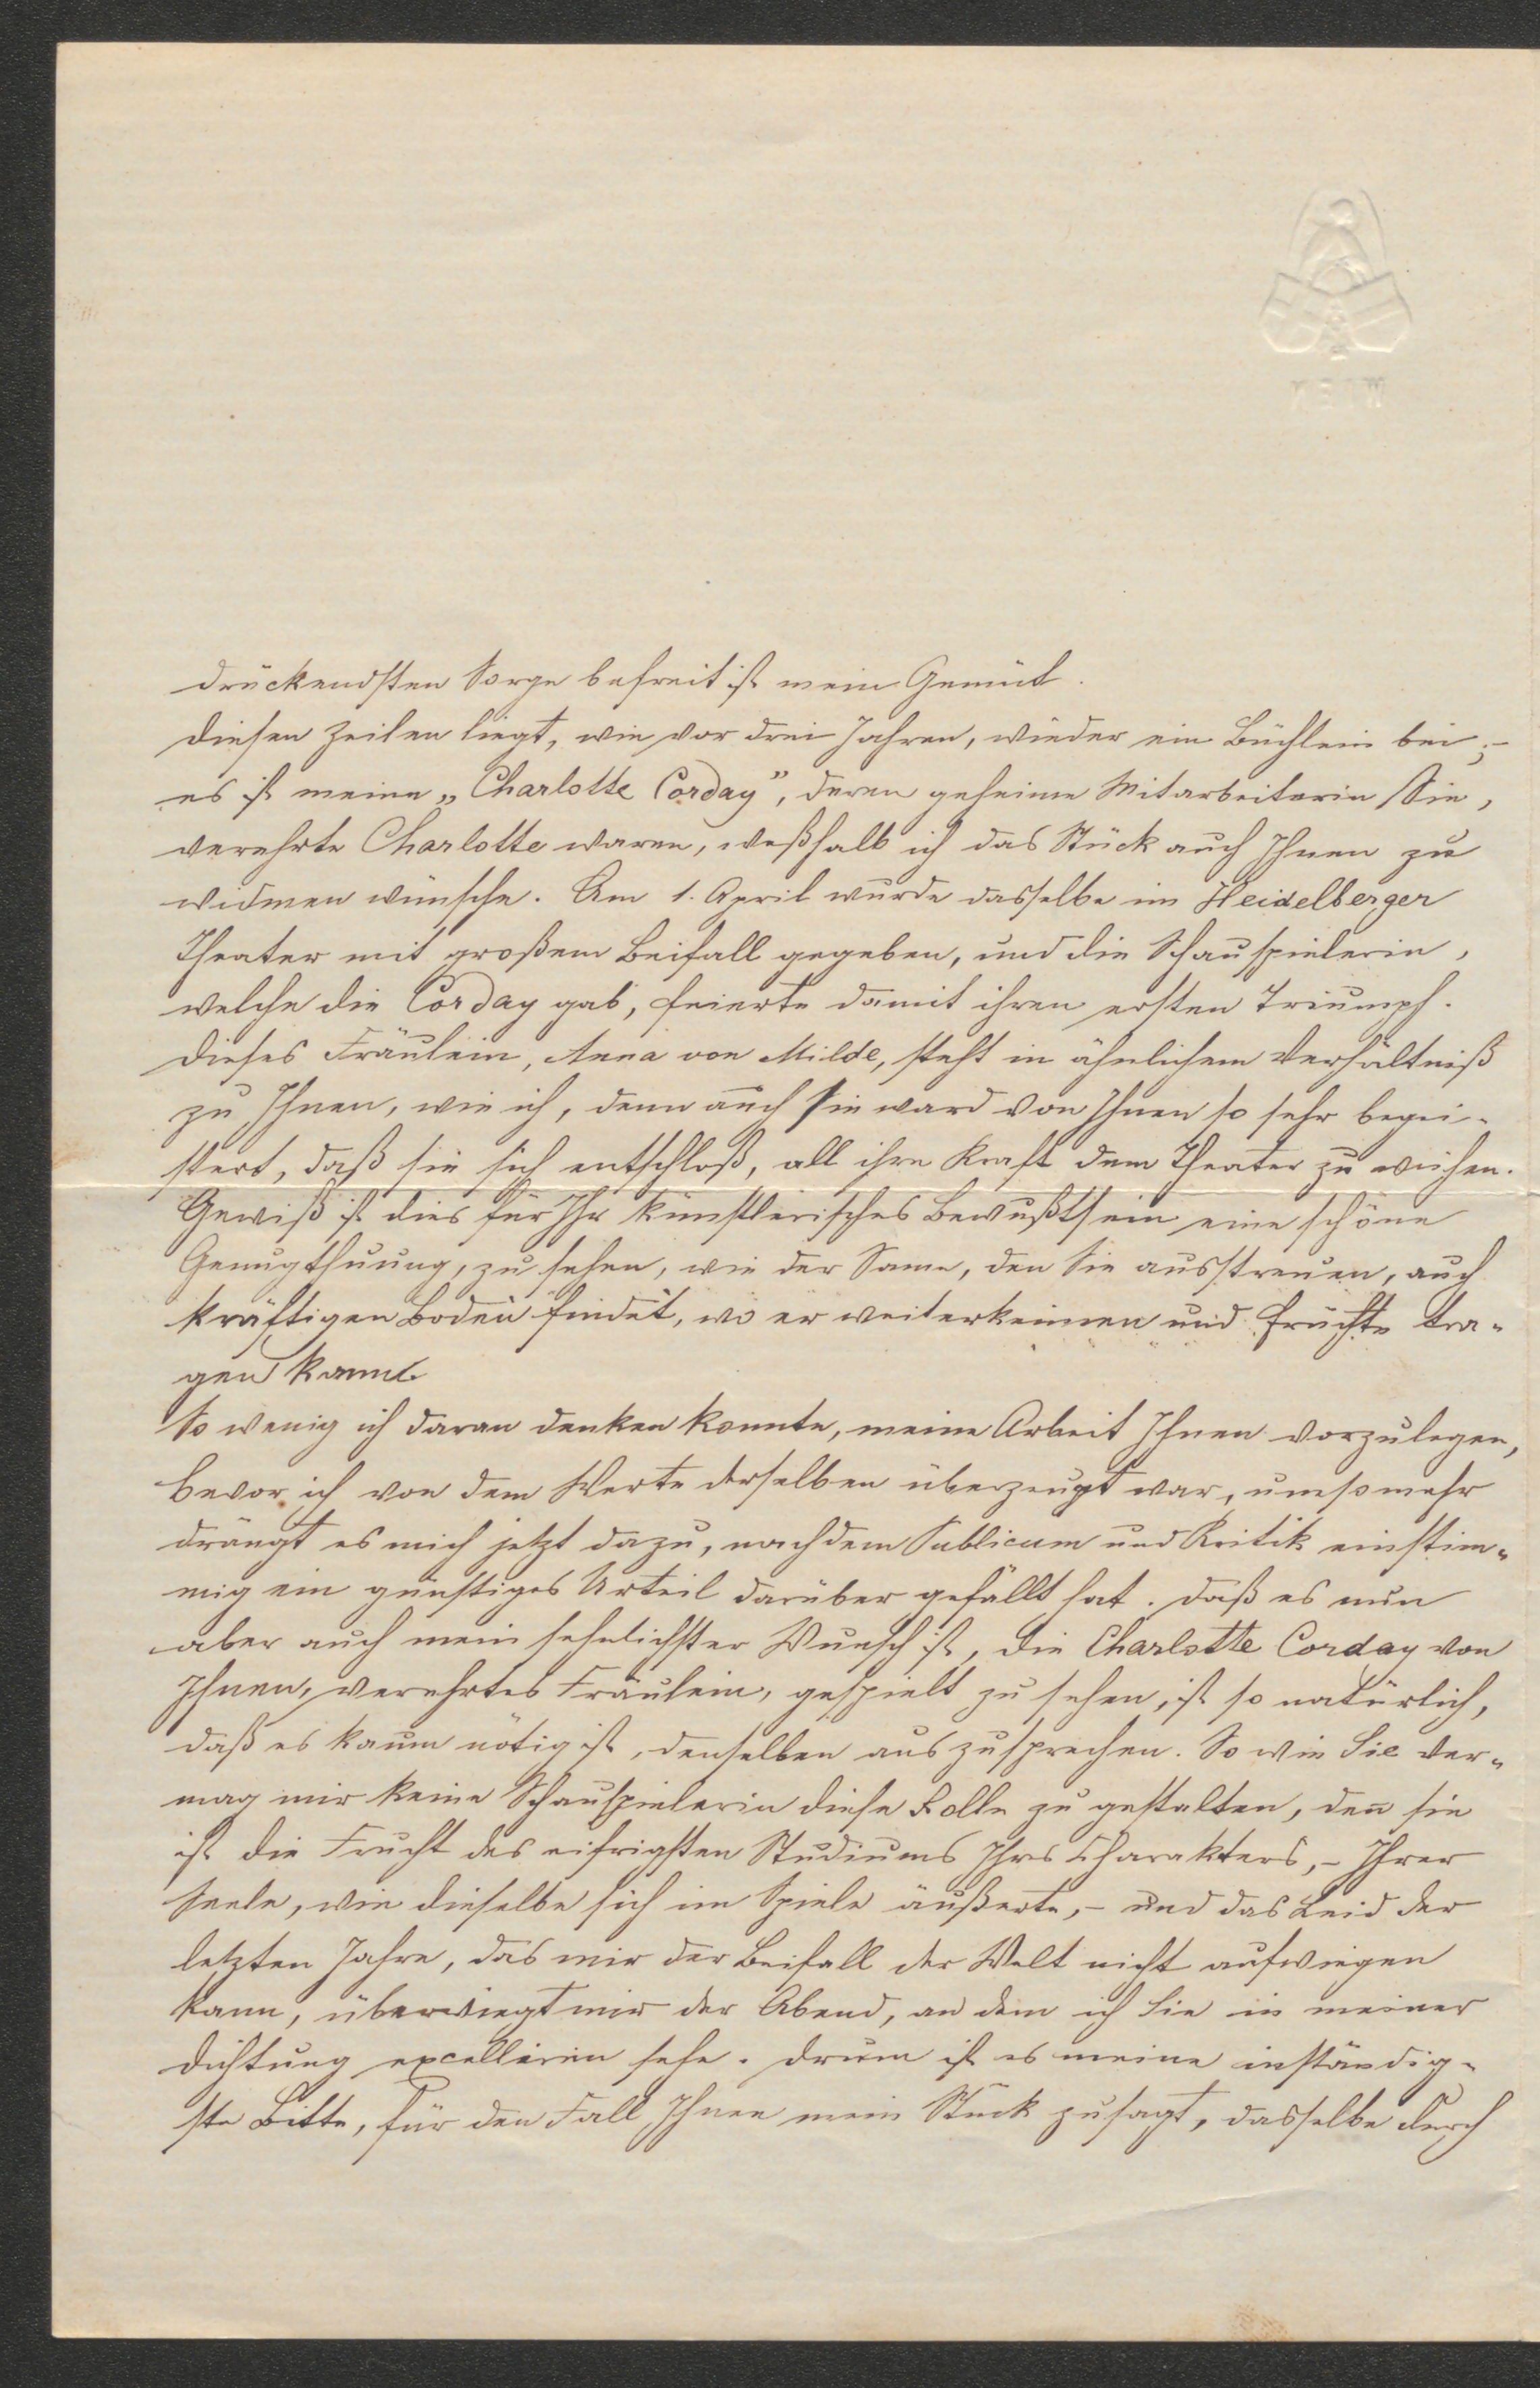 drückendsten Sorge befreit ist mein Gemüt.
Diesen Zeilen liegt, wie vor drei Jahren, wieder ein Büchlein bei;–
es ist meine „Charlotte Corday”, deren geheime Mitarbeiterin Sie,
verehrte Charlotte waren, weßhalb ich das Stück auch Ihnen zu
widmen wünsche. Am 1. April wurde dasselbe im Heidelberger
Theater mit großem Beifall gegeben, und die Schauspielerin,
welche die Corday gab, feierte damit ihren ersten Triumph.
Dieses Fräulein, Anna von Milde, steht in ähnlichem Verhältniß
zu Ihnen, wie ich, denn auch sie ward von Ihnen so sehr begei-
stert, daß sie sich entschloß, all ihre Kraft dem Theater zu weihen.
Gewiß ist dies für Ihr künstlerisches Bewußtsein eine schöne
Genugthuung, zu sehen, wie der Same, den Sie ausstreuen, auch
kräftigen Boden findet, wo er weiterkeimen und Früchte tra-
gen kann.
So wenig ich daran denken konnte, meine Arbeit Ihnen vorzulegen,
bevor ich von dem Werte derselben überzeugt war, umsomehr
drängt es mich jetzt dazu, nachdem Publicum und Kritik einstim-
mig ein günstiges Urteil darüber gefällt hat. Daß es nun
aber auch mein sehnlichster Wunsch ist, die Charlotte Corday von
Ihnen, verehrtes Fräulein, gespielt zu sehen, ist so natürlich,
daß es kaum nötig ist, denselben auszusprechen. So wie Sie ver-
mag mir keine Schauspielerin diese Rolle zu gestalten, den̄ sie
ist die Frucht des eifrigsten Studiums Ihrs Charakters,– Ihrer
Seele, wie dieselbe sich im Spiele äußerte,– und das Leid der
letzten Jahre, das mir der Beifall der Welt nicht aufwiegen
kann, überwiegt mir der Abend, an dem ich Sie in meiner
Dichtung excelliren sehe. Drum ist es meine inständig-
ste Bitte, für den Fall Ihnen mein Stück zusagt, dasselbe durch